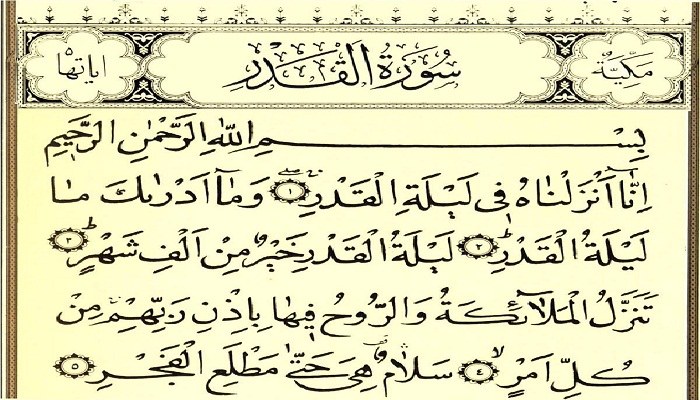 مَكِّيَّةٌ سُورَةُ الْقَدْرِ اٰيَاتُهَا ٥
بِسْمِ اللّٰهِ الرَّحْمٰنِ الرَّحٖيمِ
اِنَّٓا اَنْزَلْنَاهُ فٖي لَيْلَةِ الْقَدْرِۚ ﴿١﴾ وَمَٓا اَدْرٰيكَ مَا
لَيْلَةُ الْقَدْرِؕ ﴿٢﴾ لَيْلَةُ الْقَدْرِ خَيْرٌ مِنْ اَلْفِ شَهْرٍؕ ﴿٣﴾
تَنَزَّلُ الْمَلٰٓائِكَةُ وَالرُّوحُ فٖيهَا بِاِذْنِ رَبِّهِمْۚ مِنْ
كُلِّ اَمْرٍۙ ﴿٤﴾ سَلَامٌ هِيَ حَتّٰى مَطْلَعِ الْفَجْرِ ﴿٥﴾